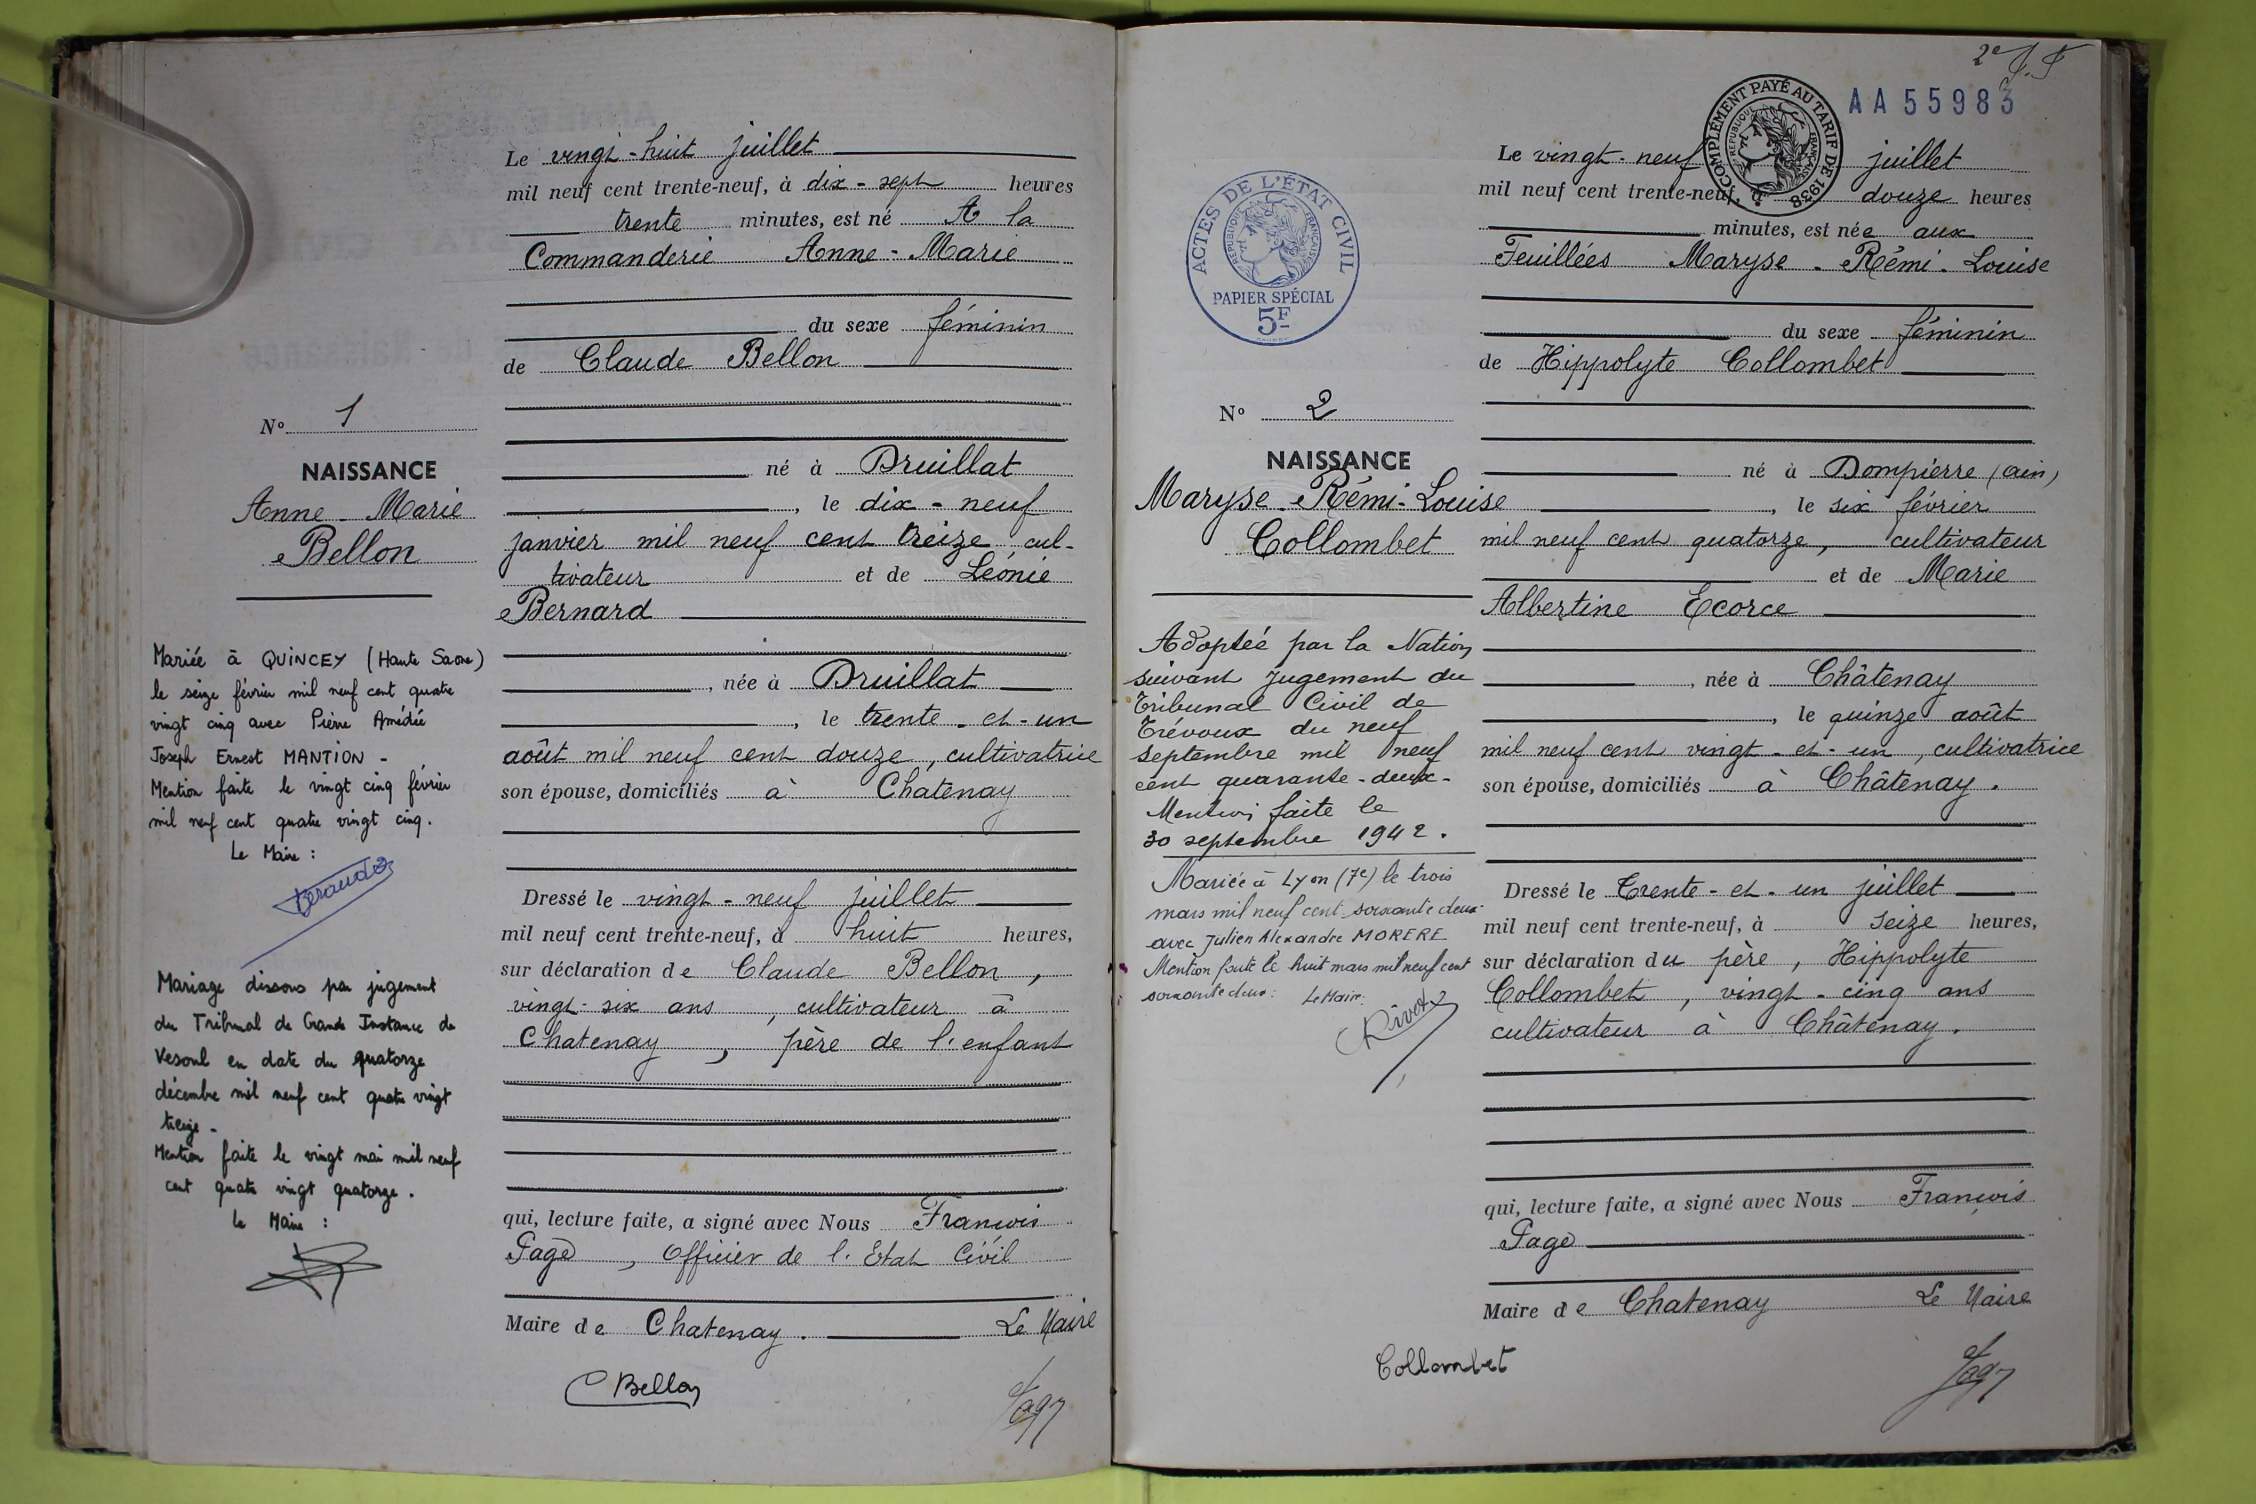 Le vingt-huit juillet
mil neuf cent trente-neuf, à dix-sept heures
trente minutes, est né A la
Commanderie Anne-Marie
du sexe féminin
de Claude Bellon
né à Druillat
, le dix-neuf
janvier mil neuf cent treize, cul-
tivateur et de Léonie
Bernard
, née à Druillat
, le trente-et-un
août mil neuf cent douze, cultivatrice
son épouse, domiciliés à Chatenay
Dressé le vingt-neuf juillet
mil neuf cent trente-neuf, à huit heures,
sur déclaration de Claude Bellon,
vingt-six ans, cultivateur à
Chatenay, père de l'enfant
qui, lecture faite, a signé avec Nous François
Page, Officier de l'Etat Civil
Maire de Chatenay. Le Maire
C Bellon
Page
N° 1
NAISSANCE
Anne-Marie
Bellon
Mariée à QUINCEY (Haute Saone)
le seize février mil neuf cent quatre
vingt cinq avec Pierre Amédée
Joseph Ernest MANTION -
Mention faite le vingt cinq février
mil neuf cent quatre vingt cinq.
Le Maire :
Mariage dissous par jugement
du Tribunal de Grande Instance de
Vesoul en date du quatorze
décembre mil neuf cent quatre vingt
treize -
Mention faite le vingt mai mil neuf
cent quatre vingt quatorze.
le Maire :
2e
AA 55983
COMPLÉMENT PAYÉ AU TARIF DE 1938
RÉPUBLIQUE FRANÇAISE
ACTES DE L'ÉTAT CIVIL
RÉPUBLIQUE FRANÇAISE
PAPIER SPÉCIAL
5F
Le vingt-neuf juillet
mil neuf cent trente-neuf, à douze heures
minutes, est née aux
Feuillées Maryse-Rémi-Louise
du sexe féminin
de Hippolyte Collombet
né à Dompierre (ain)
, le six février
mil neuf cent quatorze, cultivateur
et de Marie
Albertine Ecorce
, née à Châtenay
, le quinze août
mil neuf cent vingt-et-un, cultivatrice
son épouse, domiciliés à Châtenay.
Dressé le trente-et-un juillet
mil neuf cent trente-neuf, à seize heures,
sur déclaration du père, Hippolyte
Collombet, vingt-cinq ans
cultivateur à Châtenay.
qui, lecture faite, a signé avec Nous François
Page
Maire de Chatenay Le Maire
Collombet
Page
N° 2
NAISSANCE
Maryse-Rémi-Louise
Collombet
Adoptée par la Nation
suivant jugement du
Tribunal Civil de
Trévoux du neuf
septembre mil neuf
cent quarante-deux-
Mention faite le
30 septembre 1942.
Mariée à Lyon (7e) le trois
mars mil neuf cent soixante deux
avec Julien Alexandre MORERE
Mention faite le huit mars mil neuf cent
soixante deux: Le Maire: